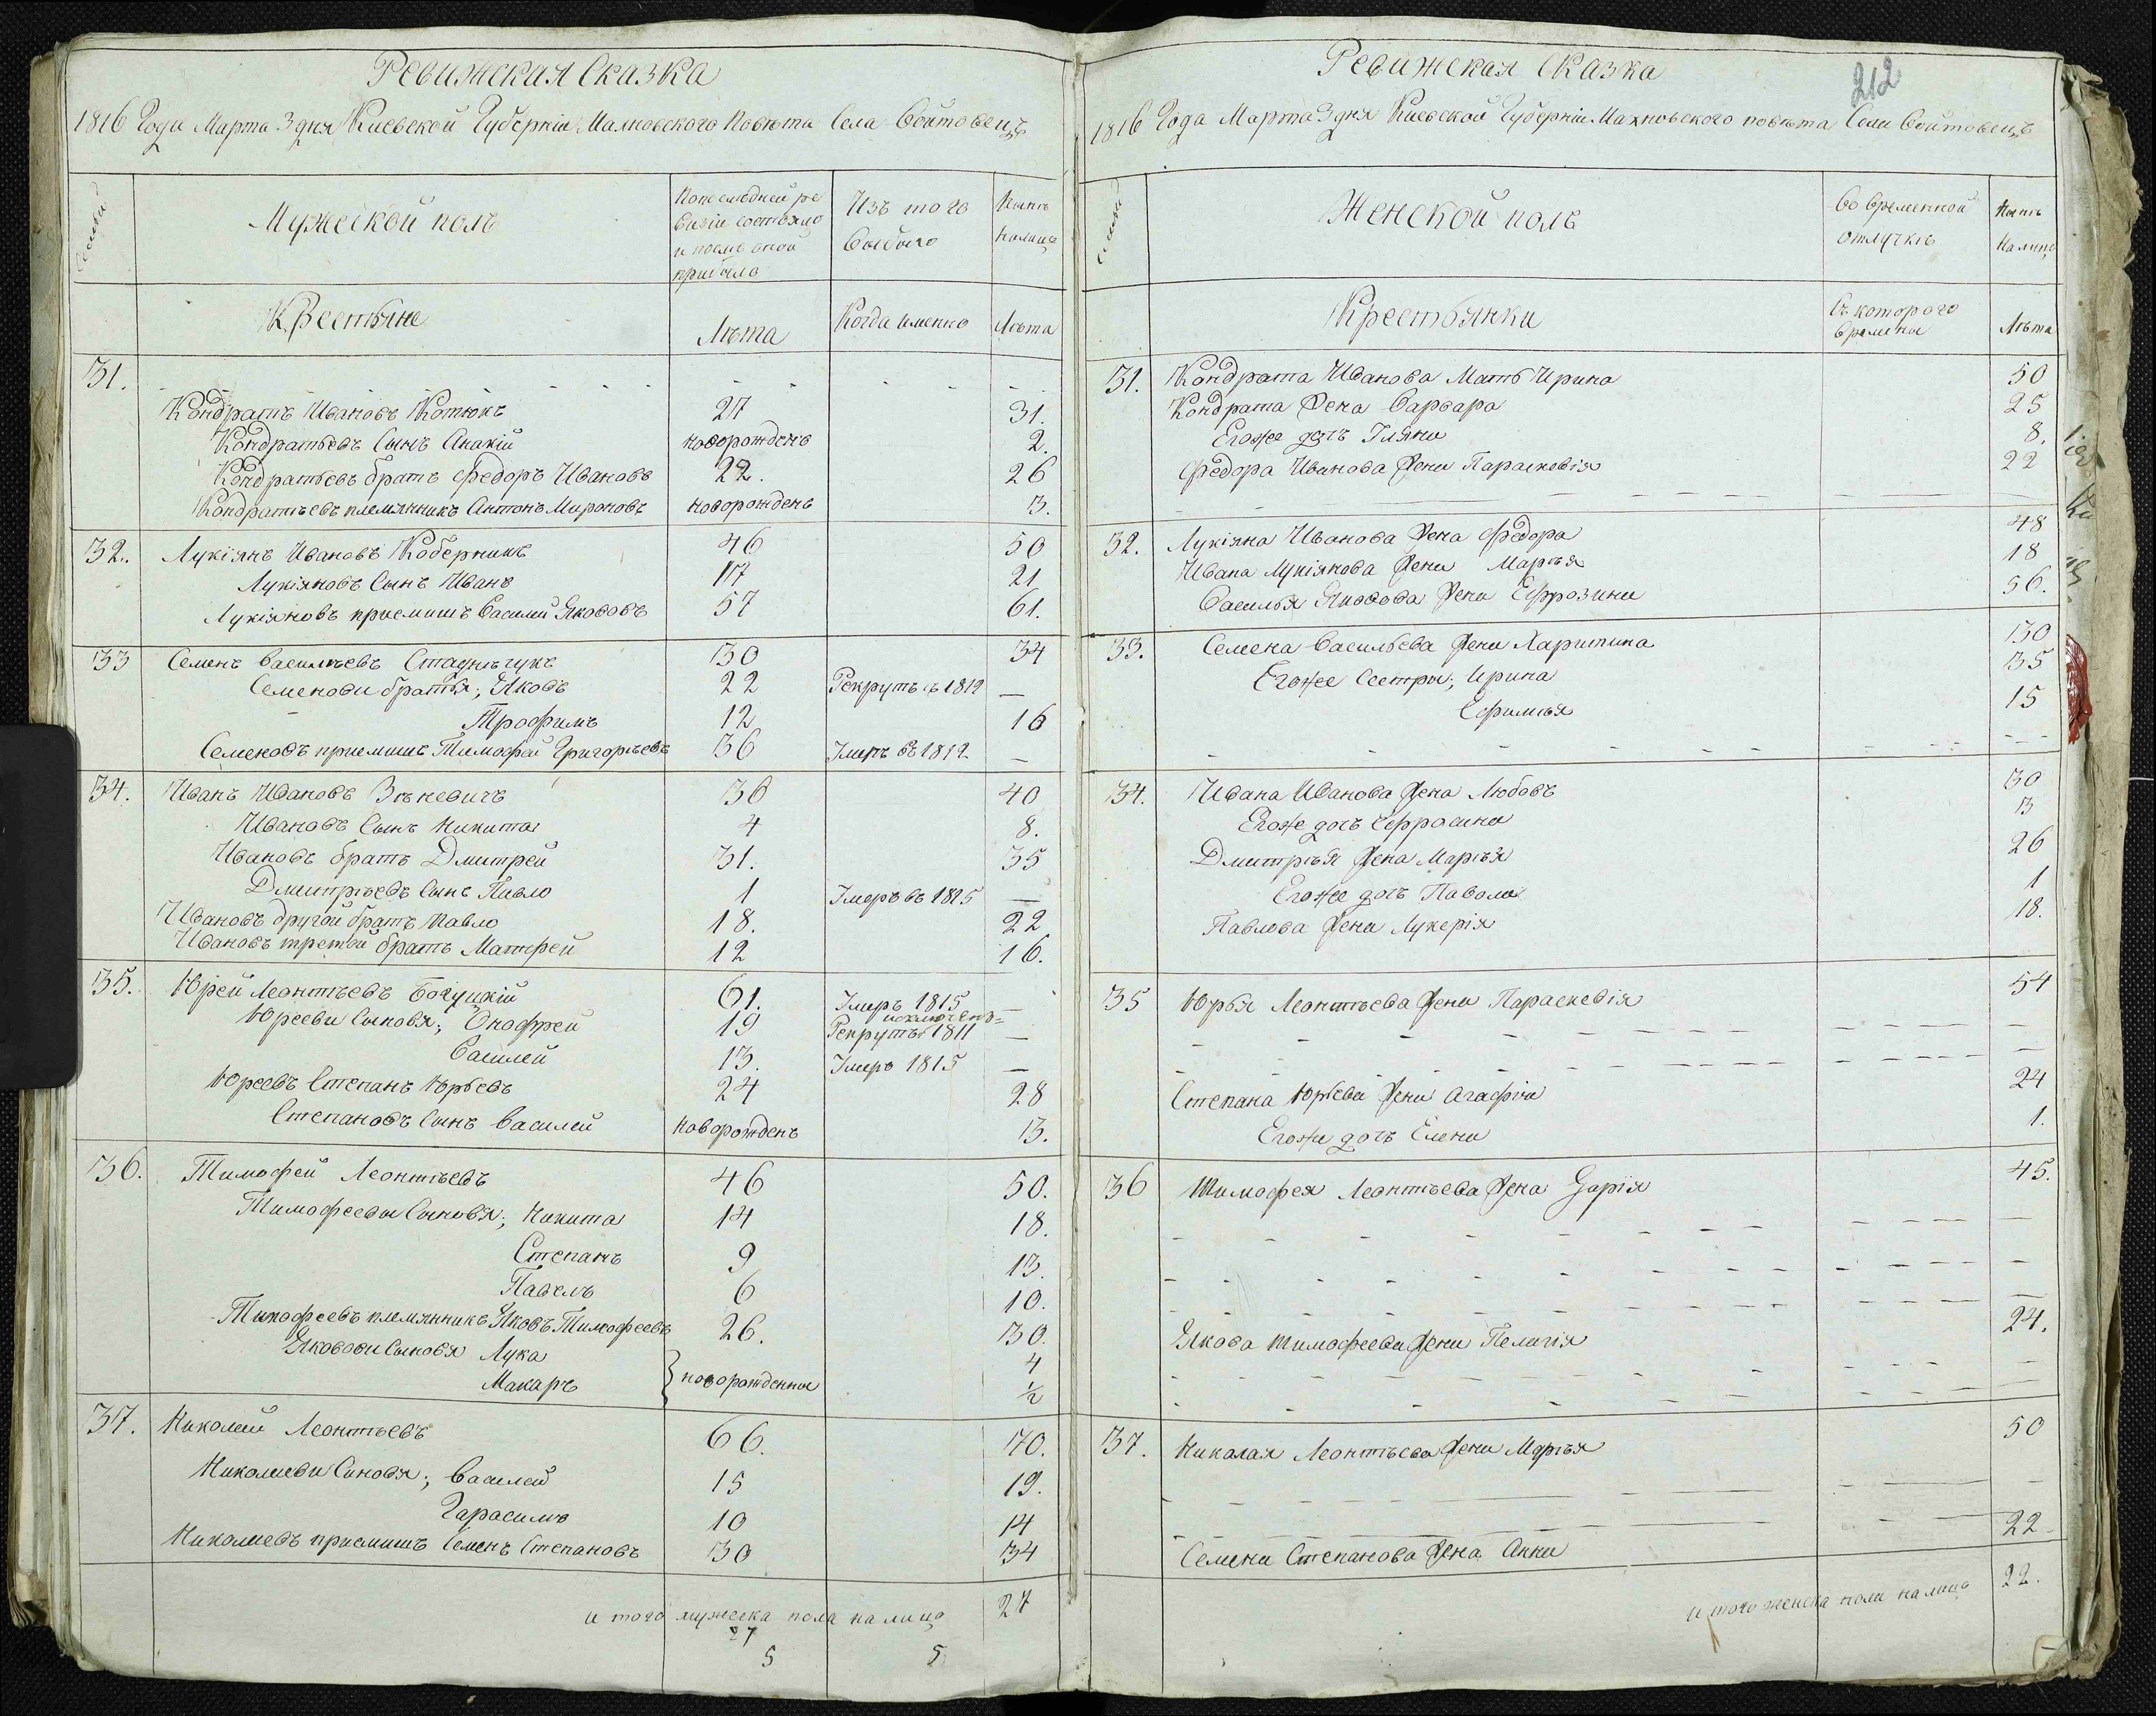 Ревижская Сказка
1816 Года Марта 3 дня Киевской Губернии Махновского Повѣта Села Войтовецъ
Мужеской полъ
По последней ре
визіи состояло
и после оной
прибыло
Изъ того
Выбыло
Нынѣ
налицо
Крестьяне
Лѣта
Когда именно
Лѣта
31.
Кондратъ Ивановъ Котюкъ 27 31.
Кондратьевъ Сынъ Анакій новорожденъ 2.
Кондратьевъ братъ Федоръ Ивановъ 22. 26
Кондратьевъ племянникъ Антонъ Мироновъ новорожденъ 3.
32. Лукіянъ Ивановъ Коберникъ 46 50
Лукіяновъ Сынъ Иванъ 17 21
Лукіяновъ приемишъ Василий Якововъ 57 61.
33 Семенъ Васильевъ Стаднѣчукъ 30 34
Семенови братья; Яковъ 22 Рекрутъ въ 1812 —
Трофимъ 12 16
Семеновъ приемишъ Тимофей Григорьевъ 36 Умеръ въ 1812 —
34. Иванъ Ивановъ Зѣнкевичъ 36 40
Ивановъ Сынъ Никита 4 8.
Ивановъ братъ Дмитрей 31. 35
Дмитріевъ Сынъ Павло 1 Умеръ въ 1815 —
Ивановъ другой братъ Павло 18. 22
Ивановъ третий братъ Матфей 12 16.
35. Юрей Леонтьевъ Богуцкій 61. Умеръ 1815 —
Юрееви Сыновя; Онофрей 19 исключенъ Рекрутъ 1811 —
Василей 13. Умеръ 1815 —
Юреевъ Степанъ Юрьевъ 24 28
Степановъ Сынъ Василей новорожденъ 3.
36. Тимофей Леонтьевъ 46 50.
Тимофееви Сыновя; Никита 14 18.
Степанъ 9 13.
Павелъ 6 10.
Тимофеевъ племянникъ Яковъ Тимофеевъ 26. 30.
Яковови Сыновя Лука 4
Макаръ новорожденные ½
37. Николай Леонтьевъ 66. 70.
Николаеви Синовя; Василей 15 19.
Гарасимъ 10 14
Николаевъ приемишъ Семенъ Степановъ 30 34
и того мужеска пола налицо 27
27
5 5
Ревижская Сказка
212
1816 Года Марта 3 дня Киевской Губерніи Махновского повѣта Села Войтовецъ
Женской полъ
Во временной
отлучкѣ
Нынѣ
налицо
Крестьянки
Съ которого
времени
Лѣта
31. Кондрата Иванова Мать Ирина 50
Кондрата Жена Варвара 25
Егоже дочь Уляна 8.
Федора Иванова Жена Парасковія 22
32. Лукіяна Иванова Жена Федора 48
Ивана Лукіянова Жена Марья 18
Василья Яковова Жена Ефрозина 56.
33. Семена Васильева Жена Харитина 30
Егоже Сестры; Ирина 35
Ефимья 15
34. Ивана Иванова Жена Любовъ 30
Егоже дочъ Ефросина 3
Дмитрія Жена Марья 26
Егоже дочъ Павола 1
Павлова Жена Лукерія 18.
35 Юрья Леонтьева Жена Параскевія 54
Степана Юрьева Жена Агафія 24
Егоже дочъ Елена 1.
36 Тимофея Леонтьева Жена Дарія 45.
Якова Тимофеева Жена Пелагія 24.
37. Николая Леонтьева Жена Марья 50
Семена Степанова Жена Анна 22
и того женска пола налицо 22.